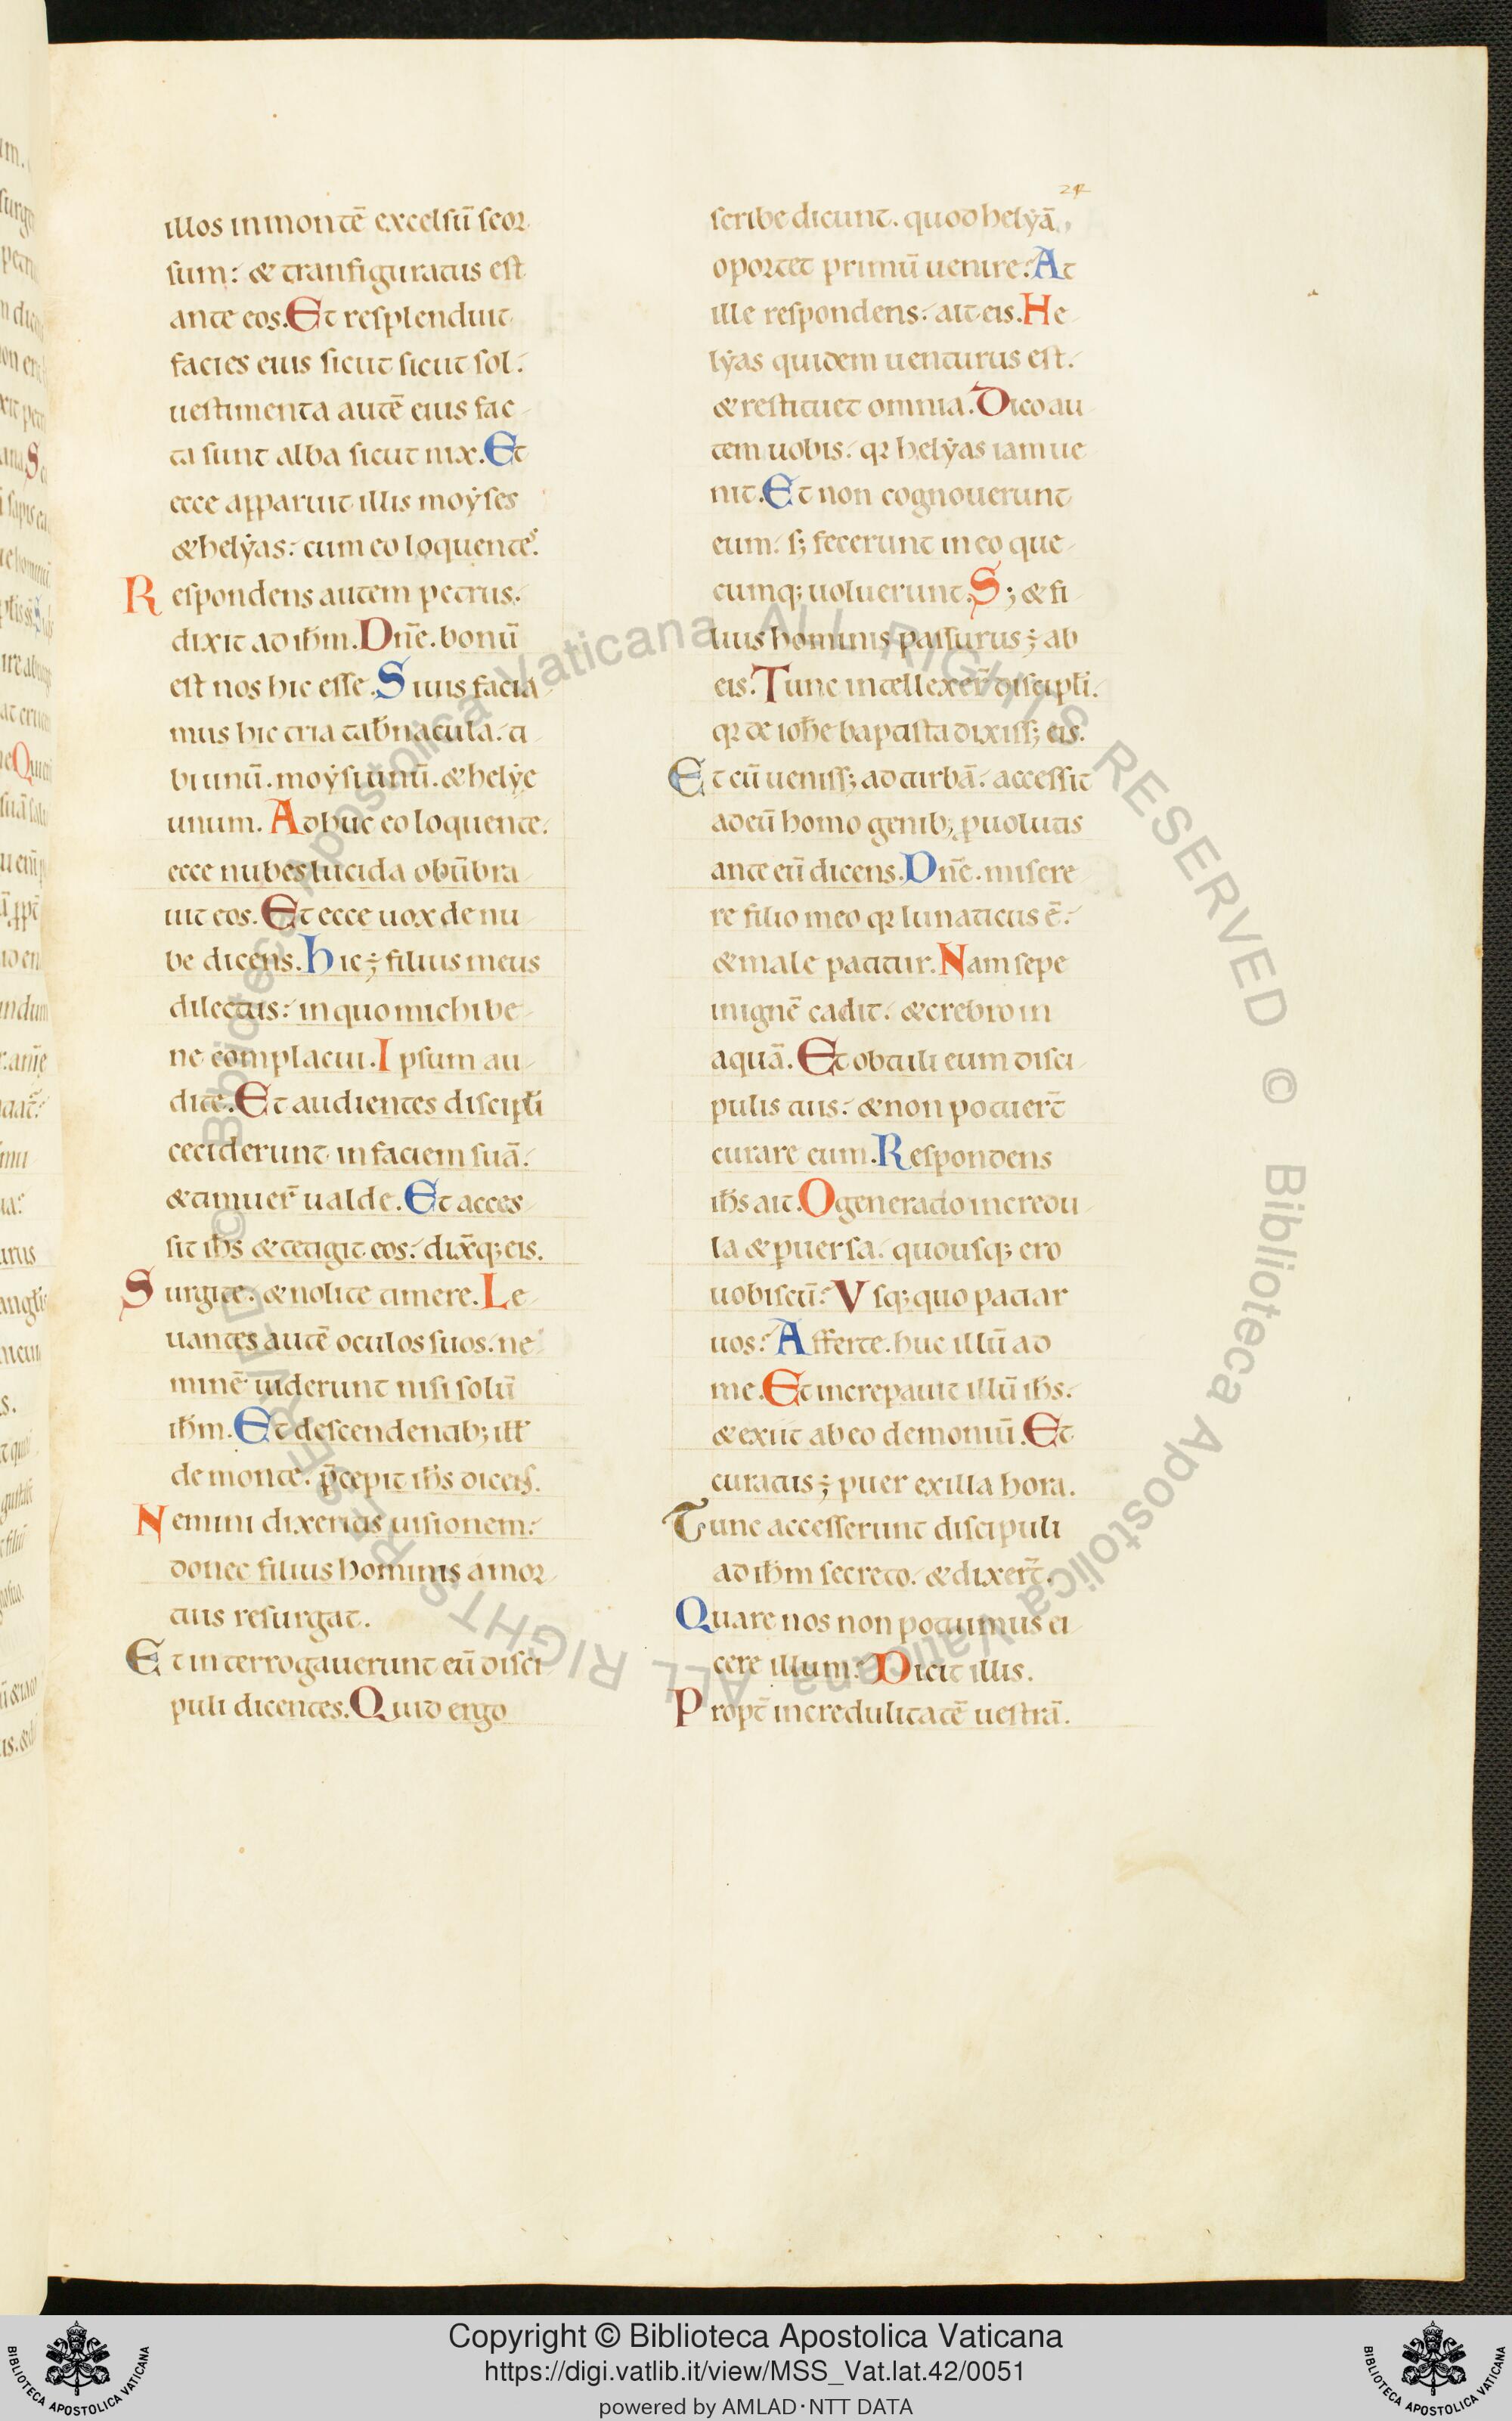 24
illos in montē excelsū seor
sum: & transfiguratus est
ante eos. Et resplenduit
facies eius sicut sicut sol.
uestimenta autē eius fac
ta sunt alba sicut nix. Et
ecce apparuit illis moẏses
& helẏas: cum eo loquentes.
Respondens autem petrus.
dixit ad ih̄m. Dn̄e. bonū
est nos hic esse. Si uis facia
mus hic tria tab̄nacula. ti
bi unū. moẏsi unū. & helẏe
unum. Adhuc eo loquente.
ecce nubes lucida obūbra
uit eos. Et ecce uox de nu
be dicens. Hic ÷ filius meus
dilectus: in quo michi be
ne complacui. Ipsum au
dite. Et audientes discipl̄i
ceciderunt in faciem suā.
& timuer̄ ualde. Et acces
sit ih̄s & tetigit eos. dix̄q; eis.
Surgite. & nolite timere. Le
uantes autē oculos suos. ne
minē uiderunt nisi solū
ih̄m. Et descendentib; ill'
de monte. p̄cepit ih̄s dic eis.
Nemini dixeritis uisionem:
donec filius hominis a mor
tuis resurgat.
Et interrogauerunt eū disci
puli dicentes. Quid ergo
scribe dicunt. quod helẏā
oportet primū uenire? At
ille respondens. ait eis. He
lẏas quidem uenturus est.
& restituet omnia. Dico au
tem uobis. qꝛ helẏas iam ue
nit. Et non cognouerunt
eum. s; fecerunt in eo que
cumq; uoluerunt. S; & fi
lius hominis passurus ÷ ab
eis. Tunc intellexer̄ discipl̄i.
qꝛ de ioh̄e baptista dixiss; eis.
Et cū ueniss; ad turbā. accessit
ad eū homo genib; ꝓuolutis
ante eū dicens. Dn̄e. misere
re filio meo qꝛ lunaticus ē.
& male patitur. Nam sepe
in ignē cadit. & crebro in
aquā. Et obtuli eum disci
pulis tuis. & non potuer̄t
curare eum. Respondens
ih̄s ait. O generatio incredu
la & ꝑuersa. quousq; ero
uobiscū? Vsq; quo patiar
uos? Afferte. huc illū ad
me. Et increpauit illū ih̄s.
& exiit ab eo demoniū. Et
curatus ÷ puer ex illa hora.
Tunc accesserunt discipuli
ad ih̄m secreto. & dixer̄t.
Quare nos non potuimus ei
cere illum? Dicit illis.
Propt̄ incredulitatē uestrā.
© Biblioteca Apostolica Vaticana ALL RIGHTS RESERVED © Biblioteca Apostolica Vaticana ALL RIGHTS RESERVED
Copyright © Biblioteca Apostolica Vaticana
https://digi.vatlib.it/view/MSS_Vat.lat.42/0051
powered by AMLAD·NTT DATA
BIBLIOTECA APOSTOLICA VATICANA
BIBLIOTECA APOSTOLICA VATICANA